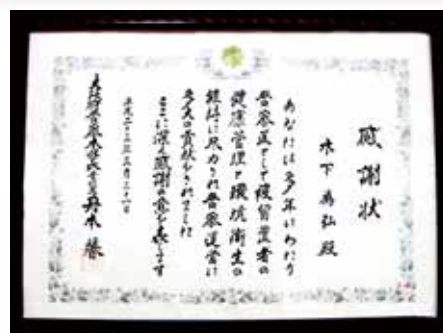 感謝状
木下 弘殿
あなたは多年にわたり
警察医として被留置者の
健康管理や環境衛生の
維持に尽力され警察運営に
多大の貢献をされました
ここに深く感謝の意を表します
平成二十三年三月二十八日
警察本部長